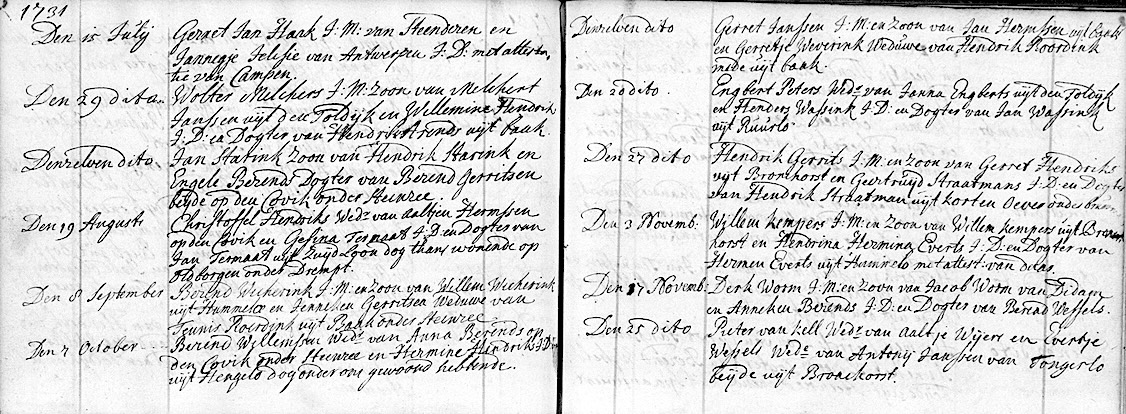 1731
Den 15 Julij
Gerret Jan Haak J: M: van Steenderen en
Jannegje Jelisie van Antwerpen J: D: met attesta=
tie van Campen.
Den 29 dito
Wolter Melchers J: M: zoon van Melchert
Janssen uijt den Toldijk en Willemine Hendrik
J: D: en Dogter van Hendrik Arends uijt baak.
Denzelven dito
Jan Statink zoon van Hendrik Starink en
Engele Berends Dogter van Berend Gerritsen
beijde op den Covik onder Steenree
Den 19 Augusti
Christoffel Hendriks Wedr van Aaltjen Hermssen
op den Covik en Gesina Termaat J: D: en Dogter van
Jan Termaat uijt Zuijd Loon dog thans wonende op
onder Drempt.
Den 8 September
Berend Wicherink J: M: en zoon van Willem Wicherink
uijt Hummelo en Jenneken Gerritsen Weduwe van
Teunis Roerdink uijt Baak onder Steenree
Den 7 October
Berend Willemssen Wedr van Anna Berends op
den Covik onder Steenree en Hermine Hendriks J: D:
uijt Hengelo dog onder ons gewoond hebbende.
Denzelven dito
Gerret Janssen J: M: en zoon van Jan Hermssen uijt
en Gerretje Weverink Weduwe van Hendrik Roordink
mede uijt baak.
Den 20 dito
Engbert Peters Wedr van Janna Engberts uijt den Toldijk
en Henders Wassink J: D: en Dogter van Jan Wassink
uijt Ruurlo
Den 27 dito
Hendrik Gerrits J: M: en zoon van Gerret Hendriks
uijt Bronkhorst en Geertruijd Straatmans J: D: en Dogter
van Hendrik Straatman uijt korten Oever onder
Den 3 Novemb:
Willem Kempers J: M: en zoon van Willem Kempers uijt Bronk
horst en Hendrina Hermina Everts J: D: en Dogter van
Hermen Everts uijt Hummelo met attest: van
Den 17 Novemb:
Derk Worm J: M: en zoon van Jacob Worm van Didam
en Anneken Berends J: D: en Dogter van Berend Wessels.
Den 25 dito
Pieter van Hell Wedr van Aaltje Wijers en Evertje
Wessels Wedr van Antonij Janssen van Tongerlo
beijde uijt Bronchorst.